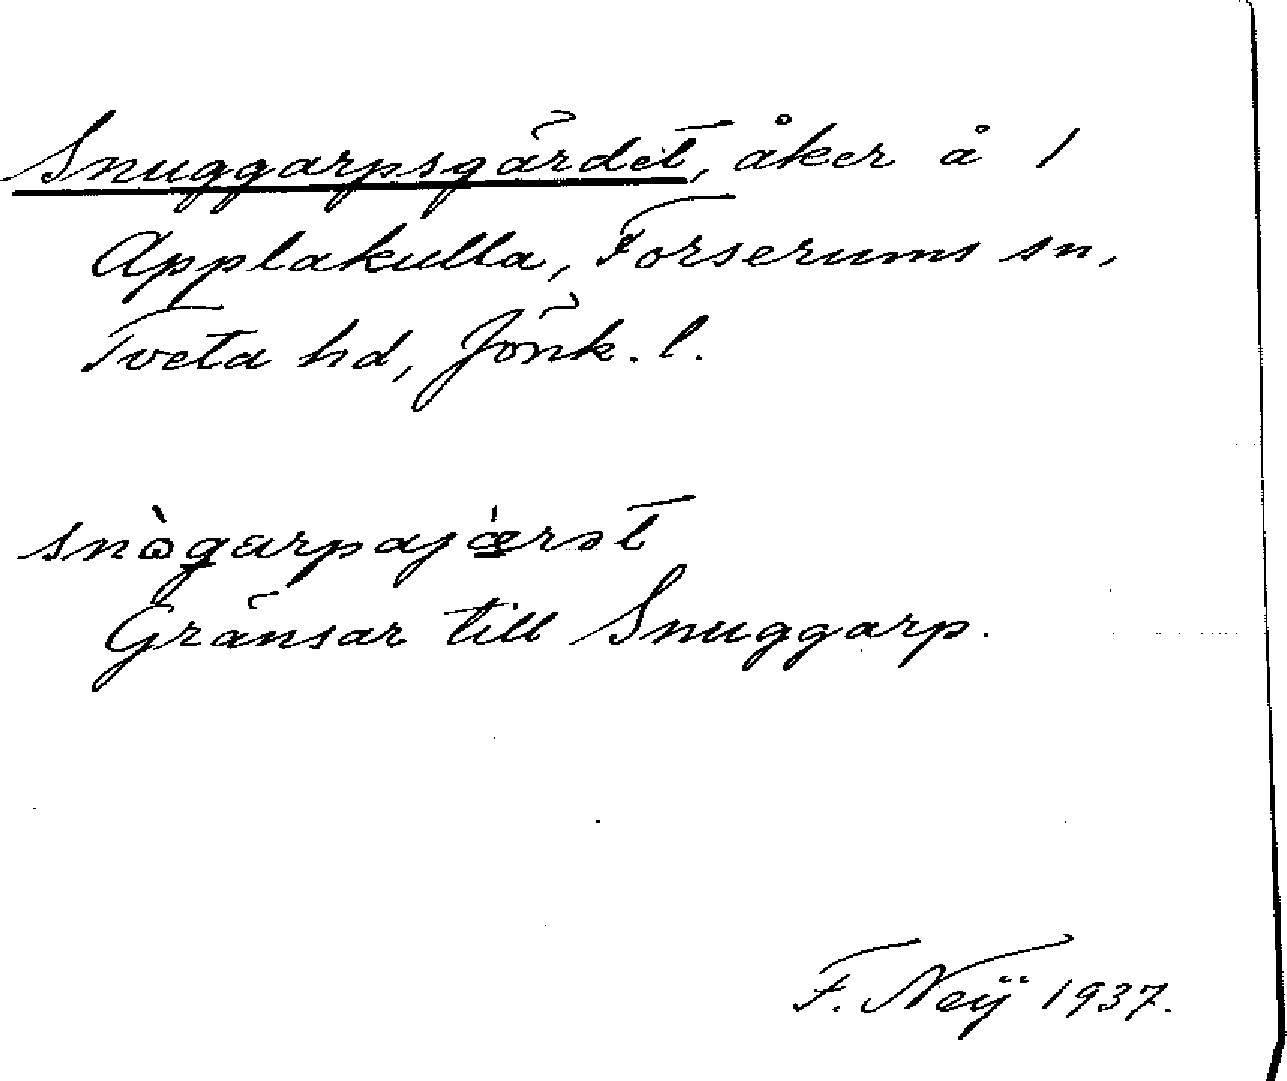 Snuggarpsgärdet, åker å 1
Applakulla, Forserums sn,
Tveta hd, Jönk. l.
Gränsar till Snuggarp.
F. Neij 1937.